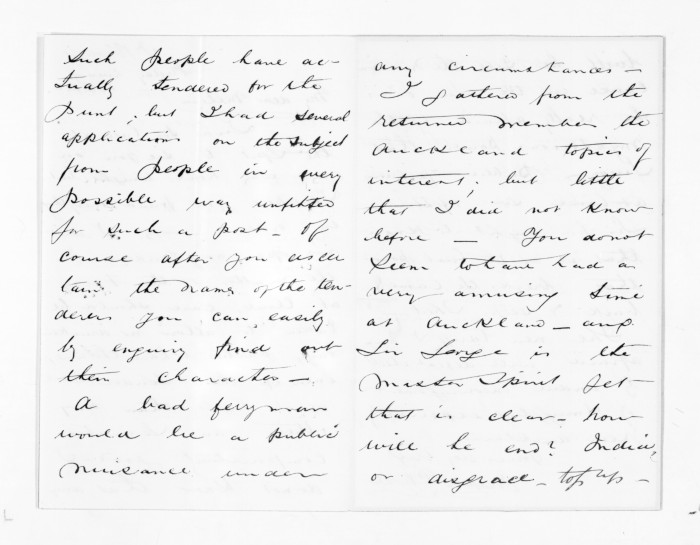 Such people have ac-
tually tendered for the
punt; but I had several
applications on the subject
from people in every
possible way unfitted
for such a post - Of
course after you ascer
tain the names of the ten-
derers you can easily
by enquiry find out
their character -
A bad ferryman
would be a public
nuisance under
any circumstances -
I gathered from the
returned members the
Auckland topics of
interest; but little
that I did not know
before - You do not
seem to have had a
very amusing time
at Auckland - and
Sir George is the
Master Spirit yet -
that is clear - how
will he end? India,
or disgrace - top up -